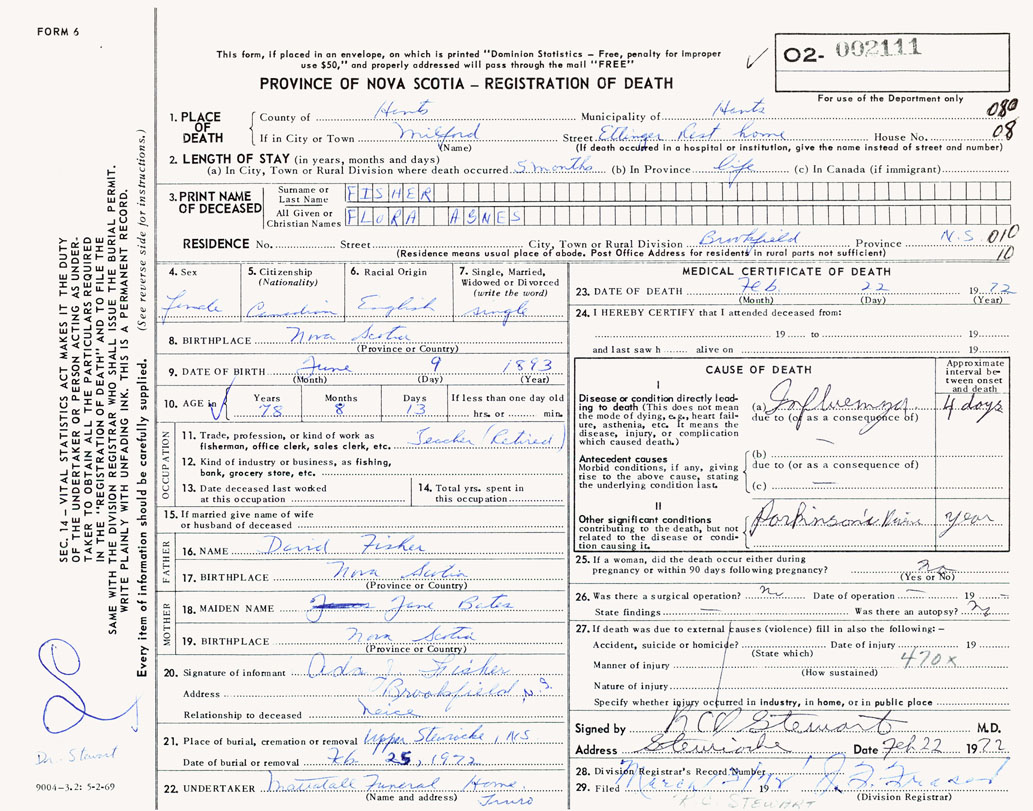 FORM 6
This form, if placed in an envelope, on which is printed "Dominion Statistics – Free, penalty for improper
use $50," and properly addressed will pass through the mail "FREE"
O2- 002111
For use of the Department only
PROVINCE OF NOVA SCOTIA – REGISTRATION OF DEATH
1. PLACE OF DEATH
County of Hants Municipality of Hants 080
If in City or Town Milford Street Ettinger Rest home House No. 08
(Name) (If death occurred in a hospital or institution, give the name instead of street and number)
2. LENGTH OF STAY (in years, months and days)
(a) In City, Town or Rural Division where death occurred 5 months (b) In Province life (c) In Canada (if immigrant)
3. PRINT NAME OF DECEASED
Surname or Last Name FISHER
All Given or Christian Names FLORA AGNES
RESIDENCE No. Street City, Town or Rural Division Brookfield Province N.S. 010
(Residence means usual place of abode. Post Office Address for residents in rural parts not sufficient) 10
4. Sex female
5. Citizenship (Nationality) Canadian
6. Racial Origin English
7. Single, Married, Widowed or Divorced (write the word) single
8. BIRTHPLACE Nova Scotia
(Province or Country)
9. DATE OF BIRTH June 9 1893
(Month) (Day) (Year)
10. AGE in Years 78 Months 8 Days 13 If less than one day old hrs. or min.
OCCUPATION
11. Trade, profession, or kind of work as fisherman, office clerk, sales clerk, etc. Teacher (Retired)
12. Kind of industry or business, as fishing, bank, grocery store, etc.
13. Date deceased last worked at this occupation
14. Total yrs. spent in this occupation
15. If married give name of wife or husband of deceased
FATHER
16. NAME David Fisher
17. BIRTHPLACE Nova Scotia
(Province or Country)
MOTHER
18. MAIDEN NAME Jane Bates
19. BIRTHPLACE Nova Scotia
(Province or Country)
20. Signature of informant Ada J Fisher
Address Brookfield, N.S.
Relationship to deceased Neice
21. Place of burial, cremation or removal Upper Stewiacke, NS
Date of burial or removal Feb. 25, 1972
22. UNDERTAKER Mattatall Funeral Home
(Name and address) Truro
MEDICAL CERTIFICATE OF DEATH
23. DATE OF DEATH Feb. 22 1972
(Month) (Day) (Year)
24. I HEREBY CERTIFY that I attended deceased from:
19 to 19
and last saw h alive on 19
CAUSE OF DEATH
Approximate interval between onset and death
I
Disease or condition directly leading to death (This does not mean the mode of dying, e.g., heart failure, asthenia, etc. It means the disease, injury, or complication which caused death.)
(a) Influenza 4 days
due to (or as a consequence of)
Antecedent causes
Morbid conditions, if any, giving rise to the above cause, stating the underlying condition last.
(b)
due to (or as a consequence of)
(c)
II
Other significant conditions contributing to the death, but not related to the disease or condition causing it.
Parkinson's year
25. If a woman, did the death occur either during pregnancy or within 90 days following pregnancy? no
(Yes or No)
26. Was there a surgical operation? No Date of operation 19
State findings Was there an autopsy? No
27. If death was due to external causes (violence) fill in also the following: –
Accident, suicide or homicide? Date of injury 19
(State which)
Manner of injury 470x
(How sustained)
Nature of injury
Specify whether injury occurred in industry, in home, or in public place
Signed by R C D Stewart M.D.
Address Stewiacke Date Feb 22 1972
28. Division Registrar's Record Number
29. Filed March 1 1972 J. F. Fraser
(Division Registrar)
R.C. STEWART
SEC. 14 – VITAL STATISTICS ACT MAKES IT THE DUTY
OF THE UNDERTAKER OR PERSON ACTING AS UNDER-
TAKER TO OBTAIN ALL THE PARTICULARS REQUIRED
IN THE "REGISTRATION OF DEATH" AND TO FILE THE
SAME WITH THE DIVISION REGISTRAR WHO SHALL ISSUE THE BURIAL PERMIT.
WRITE PLAINLY WITH UNFADING INK. THIS IS A PERMANENT RECORD.
Every item of information should be carefully supplied. (See reverse side for instructions.)
Dr. Stewart
9004–3.2: 5-2-69